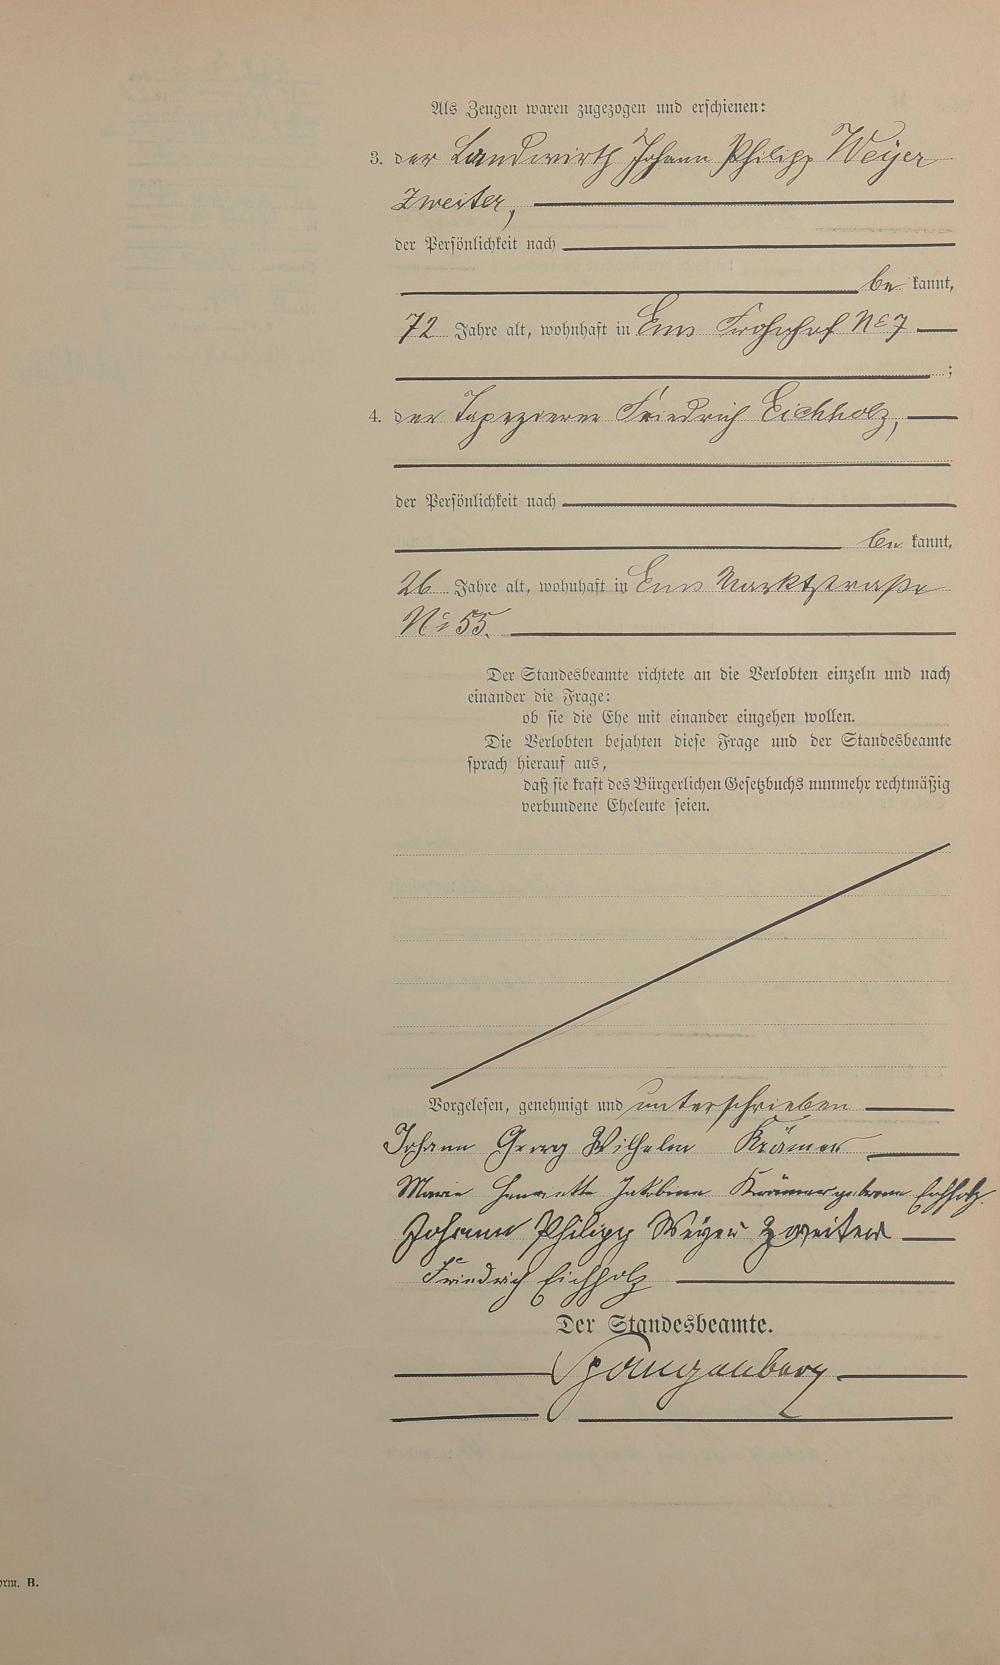 Als Zeugen waren zugezogen und erschienen:
3. der Landwirth Johann Philipp Weyer
Zweiter,
der Persönlichkeit nach
be kannt,
72 Jahre alt, wohnhaft in Ems Frohnhof No 7
;
4. der Tapezierer Friedrich Eichholz,
der Persönlichkeit nach
be kannt,
26 Jahre alt, wohnhaft in Ems Marktstraße
No 55.
Der Standesbeamte richtete an die Verlobten einzeln und nach
einander die Frage:
ob sie die Ehe mit einander eingehen wollen.
Die Verlobten bejahten diese Frage und der Standesbeamte
sprach hierauf aus,
daß sie kraft des Bürgerlichen Gesetzbuchs nunmehr rechtmäßig
verbundene Eheleute seien.
Vorgelesen, genehmigt und unterschrieben
Johann Georg Wilhelm Krämer
Marie Henriette Jakobine Krämer geborene Eichholz.
Johann Philipp Weyer Zweiter
Friedrich Eichholz
Der Standesbeamte.
Spangenberg
orm. B.